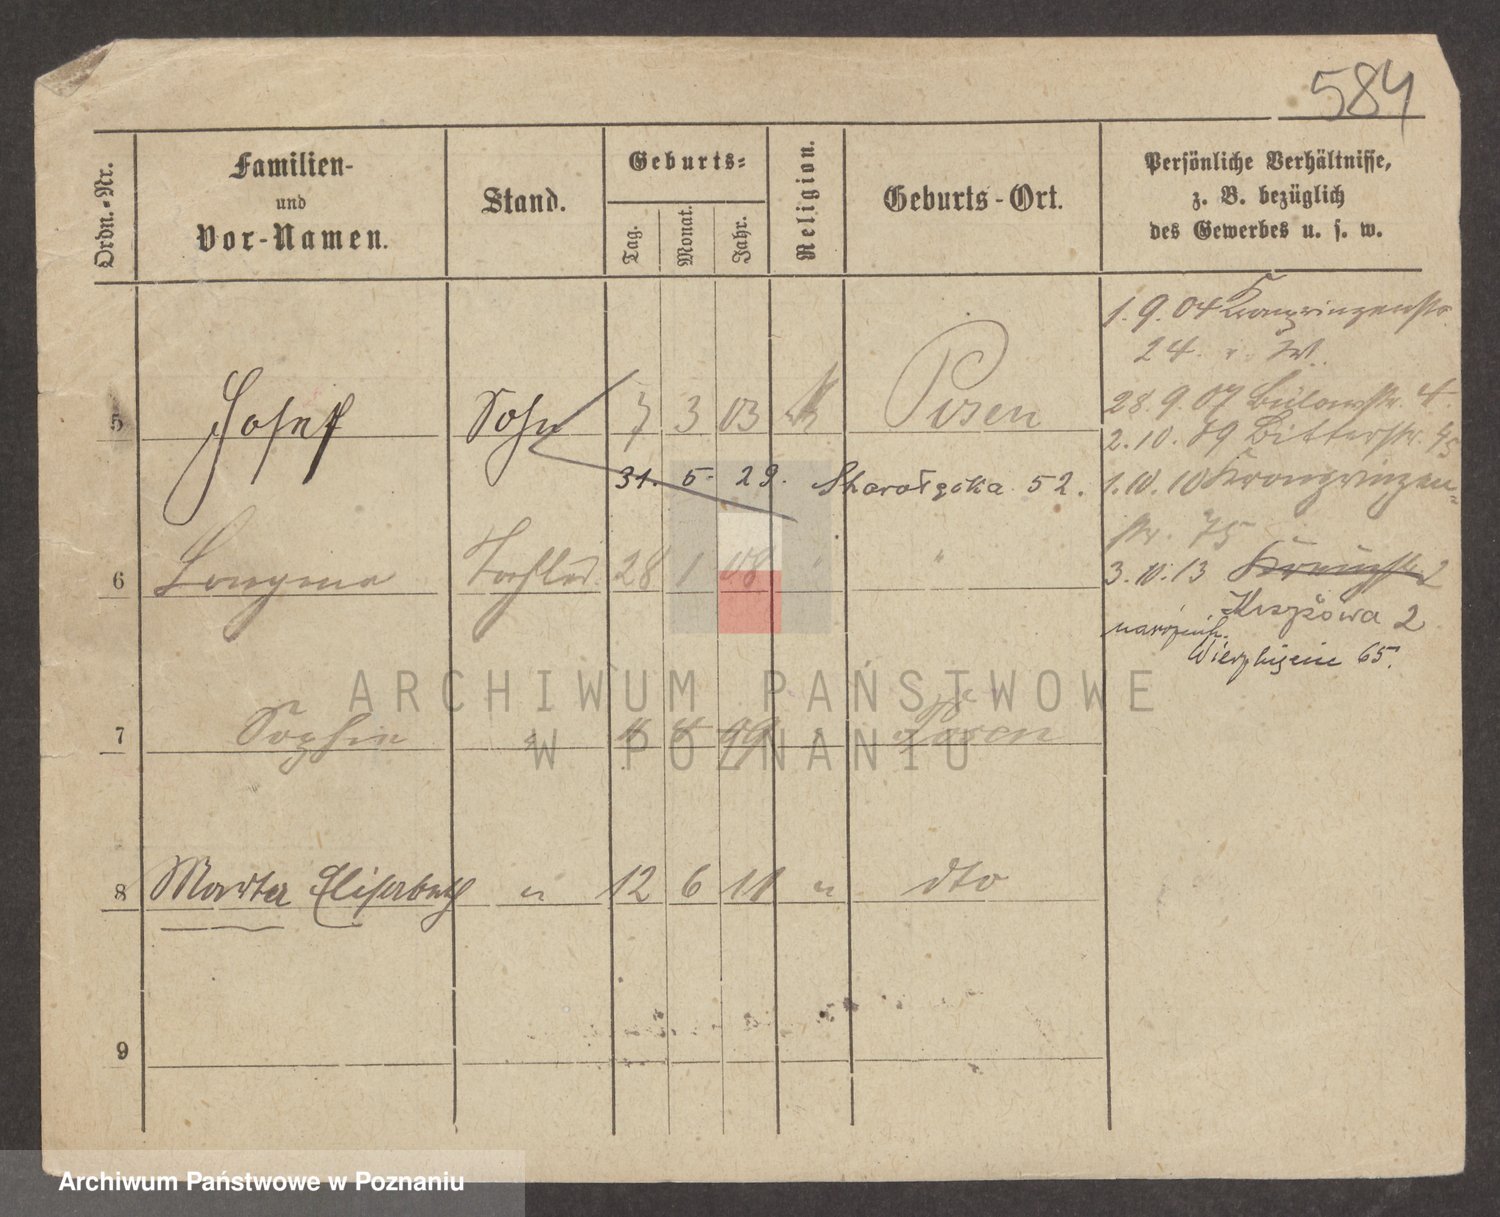 584
Ordn.-Nr.
Familien-
und
Vor-Namen.
Stand.
Geburts-
Tag.
Monat.
Jahr.
Religion.
Geburts-Ort.
Persönliche Verhältnisse,
z. B. bezüglich
des Gewerbes u. s. w.
1.9.04 Kronprinzenstr.
24.
28.9.07 Bülowstr. 4.
5 Josef Sohn 7 3 03 k Posen
2.10.09 Bitterstr. 45
31. 5. 29. Starołęcka 52.
1.10.10 Kronprinzen-
str. 75
6 Tochter 28 1 08 "
3.10.13 2
Krężowa 2
narożnik
Wierzbięcie 65.
ARCHIWUM PAŃSTWOWE
7 Sophie " 4 4 99 " Posen
W POZNANIU
8 Marta Elisabeth " 12 6 11 " dto
9
Archiwum Państwowe w Poznaniu